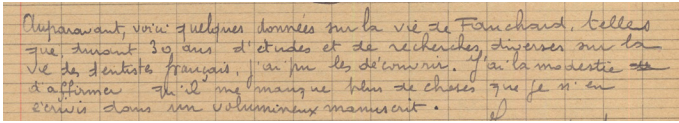 Auparavant, voici quelques données sur la vie de Fauchard, telles
que, durant 30 ans d'études et de recherches, diverses sur la
vie des dentistes français, j'ai pu les découvrir. J'ai la modestie
d'affirmer qu'il me manque plus de choses que je n'en
écrivis dans un volumineux manuscrit.